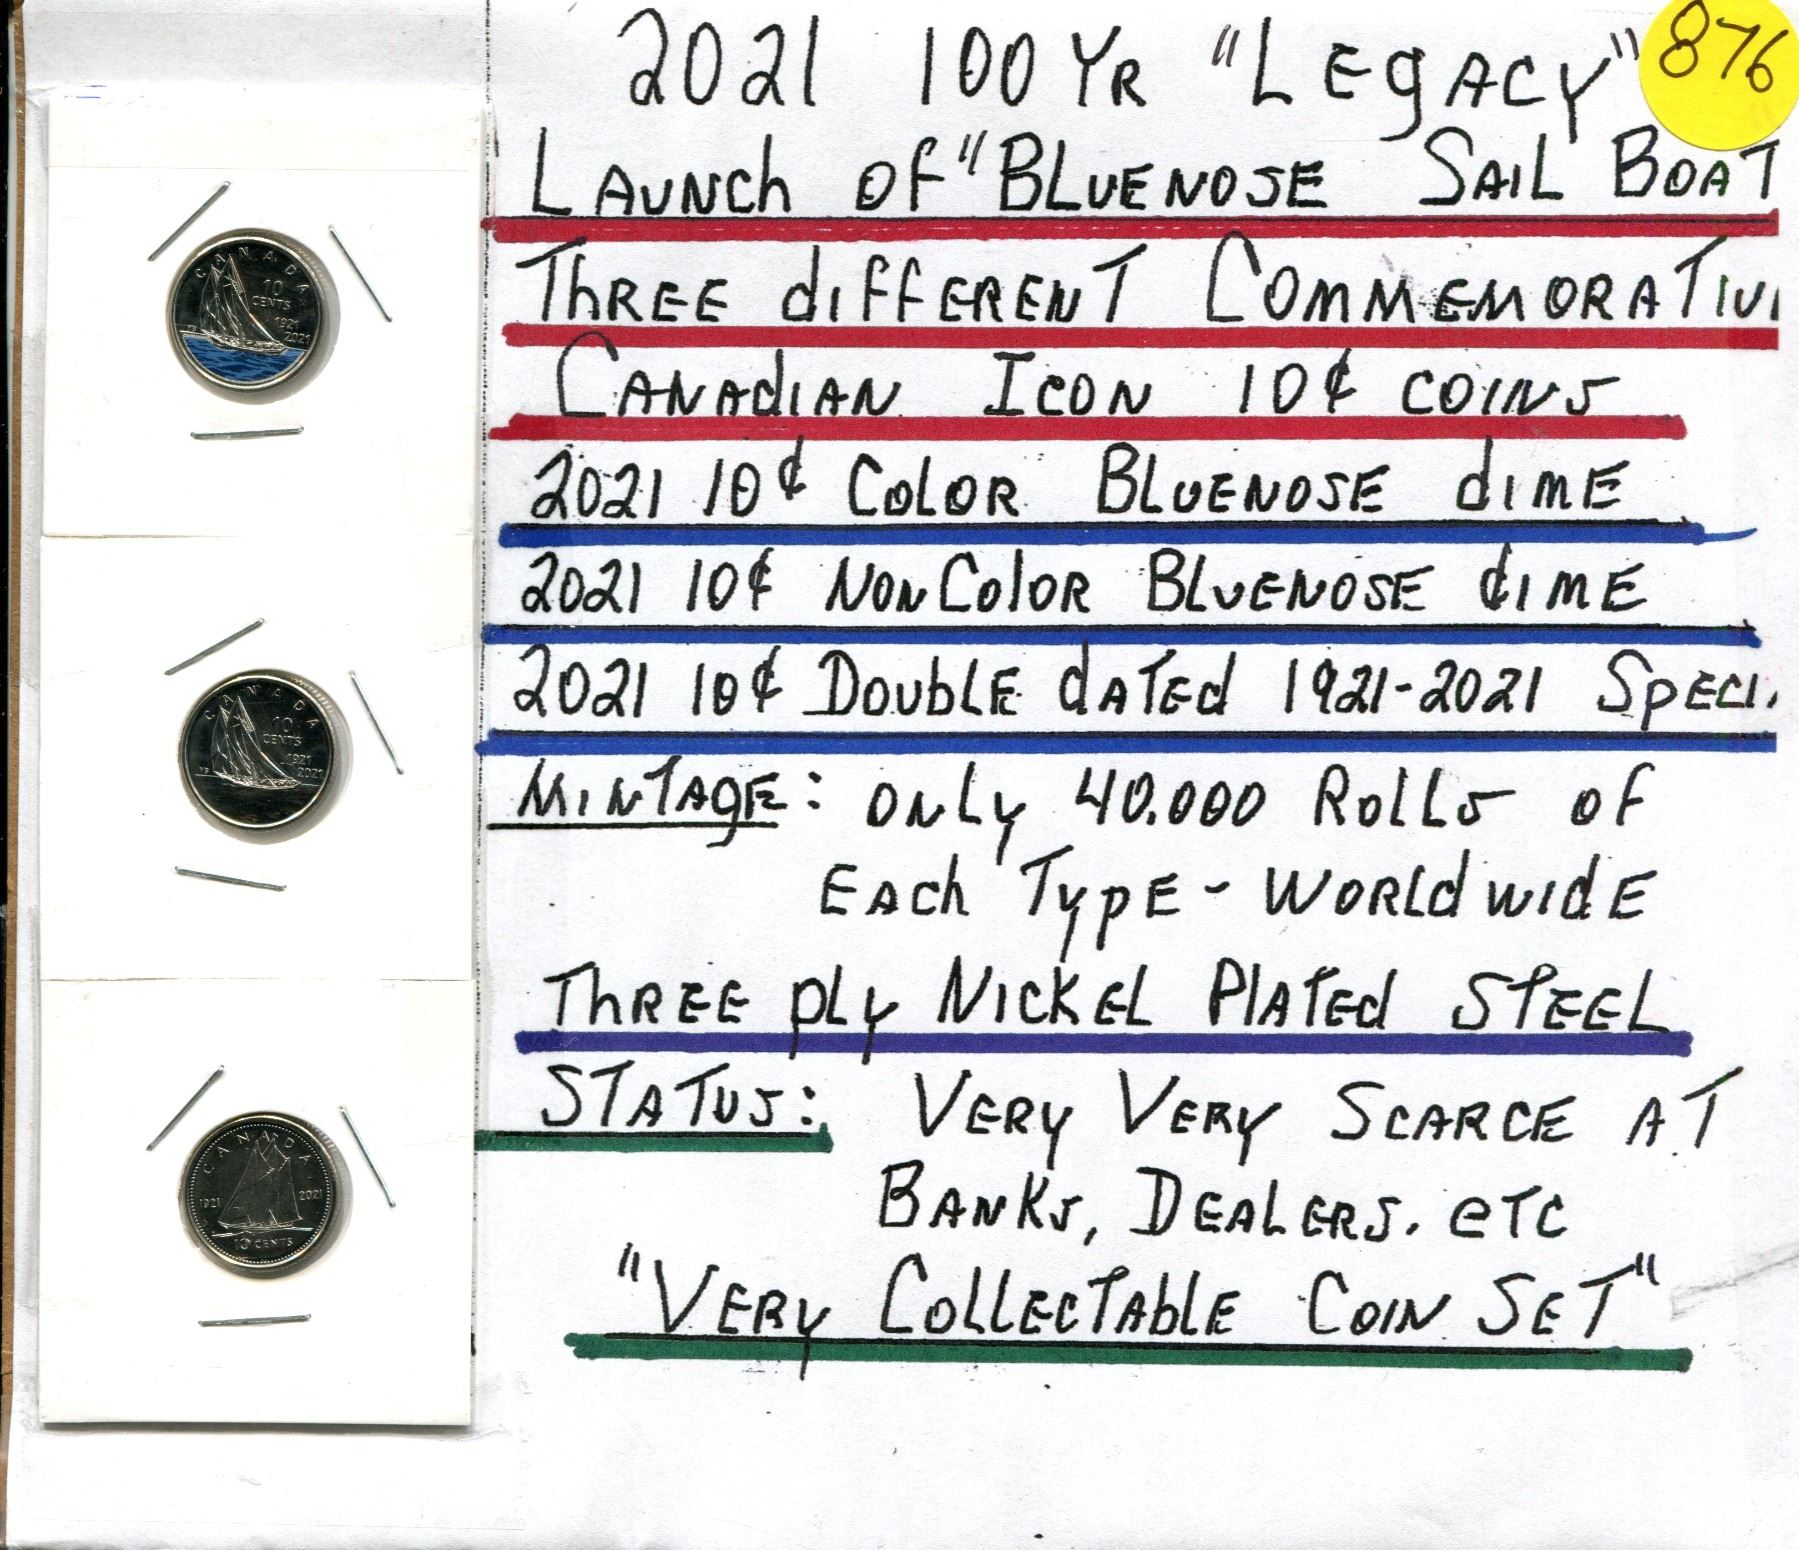 2021 100 YR "LEgACY"
876
LAUNCh OF "BLUENOSE SAIL BOAT
ThREE diFFERENT COMMEMORATIV
CANAdIAN ICON 10¢ COINS
2021 10¢ COLOR BLUENOSE diME
2021 10¢ NONCOlOR BLUENOSE diME
2021 10¢ DOUbLE dATEd 1921-2021 SpECI
MINTAgE: ONLY 40.000 ROLLS OF
EACh TYpE - WORLdwIdE
ThREE pLY NICKEL PlATEd STEEL
STATUS: VERY VERY SCARCE AT
BANKS, DEALERS. eTC
"VERY COLLECTAbLE COIN SET"
CANADA
10
CENTS
1921
2021
YB
CANADA
10
CENTS
1921
2021
YB
CANADA
1921 2021
10 CENTS